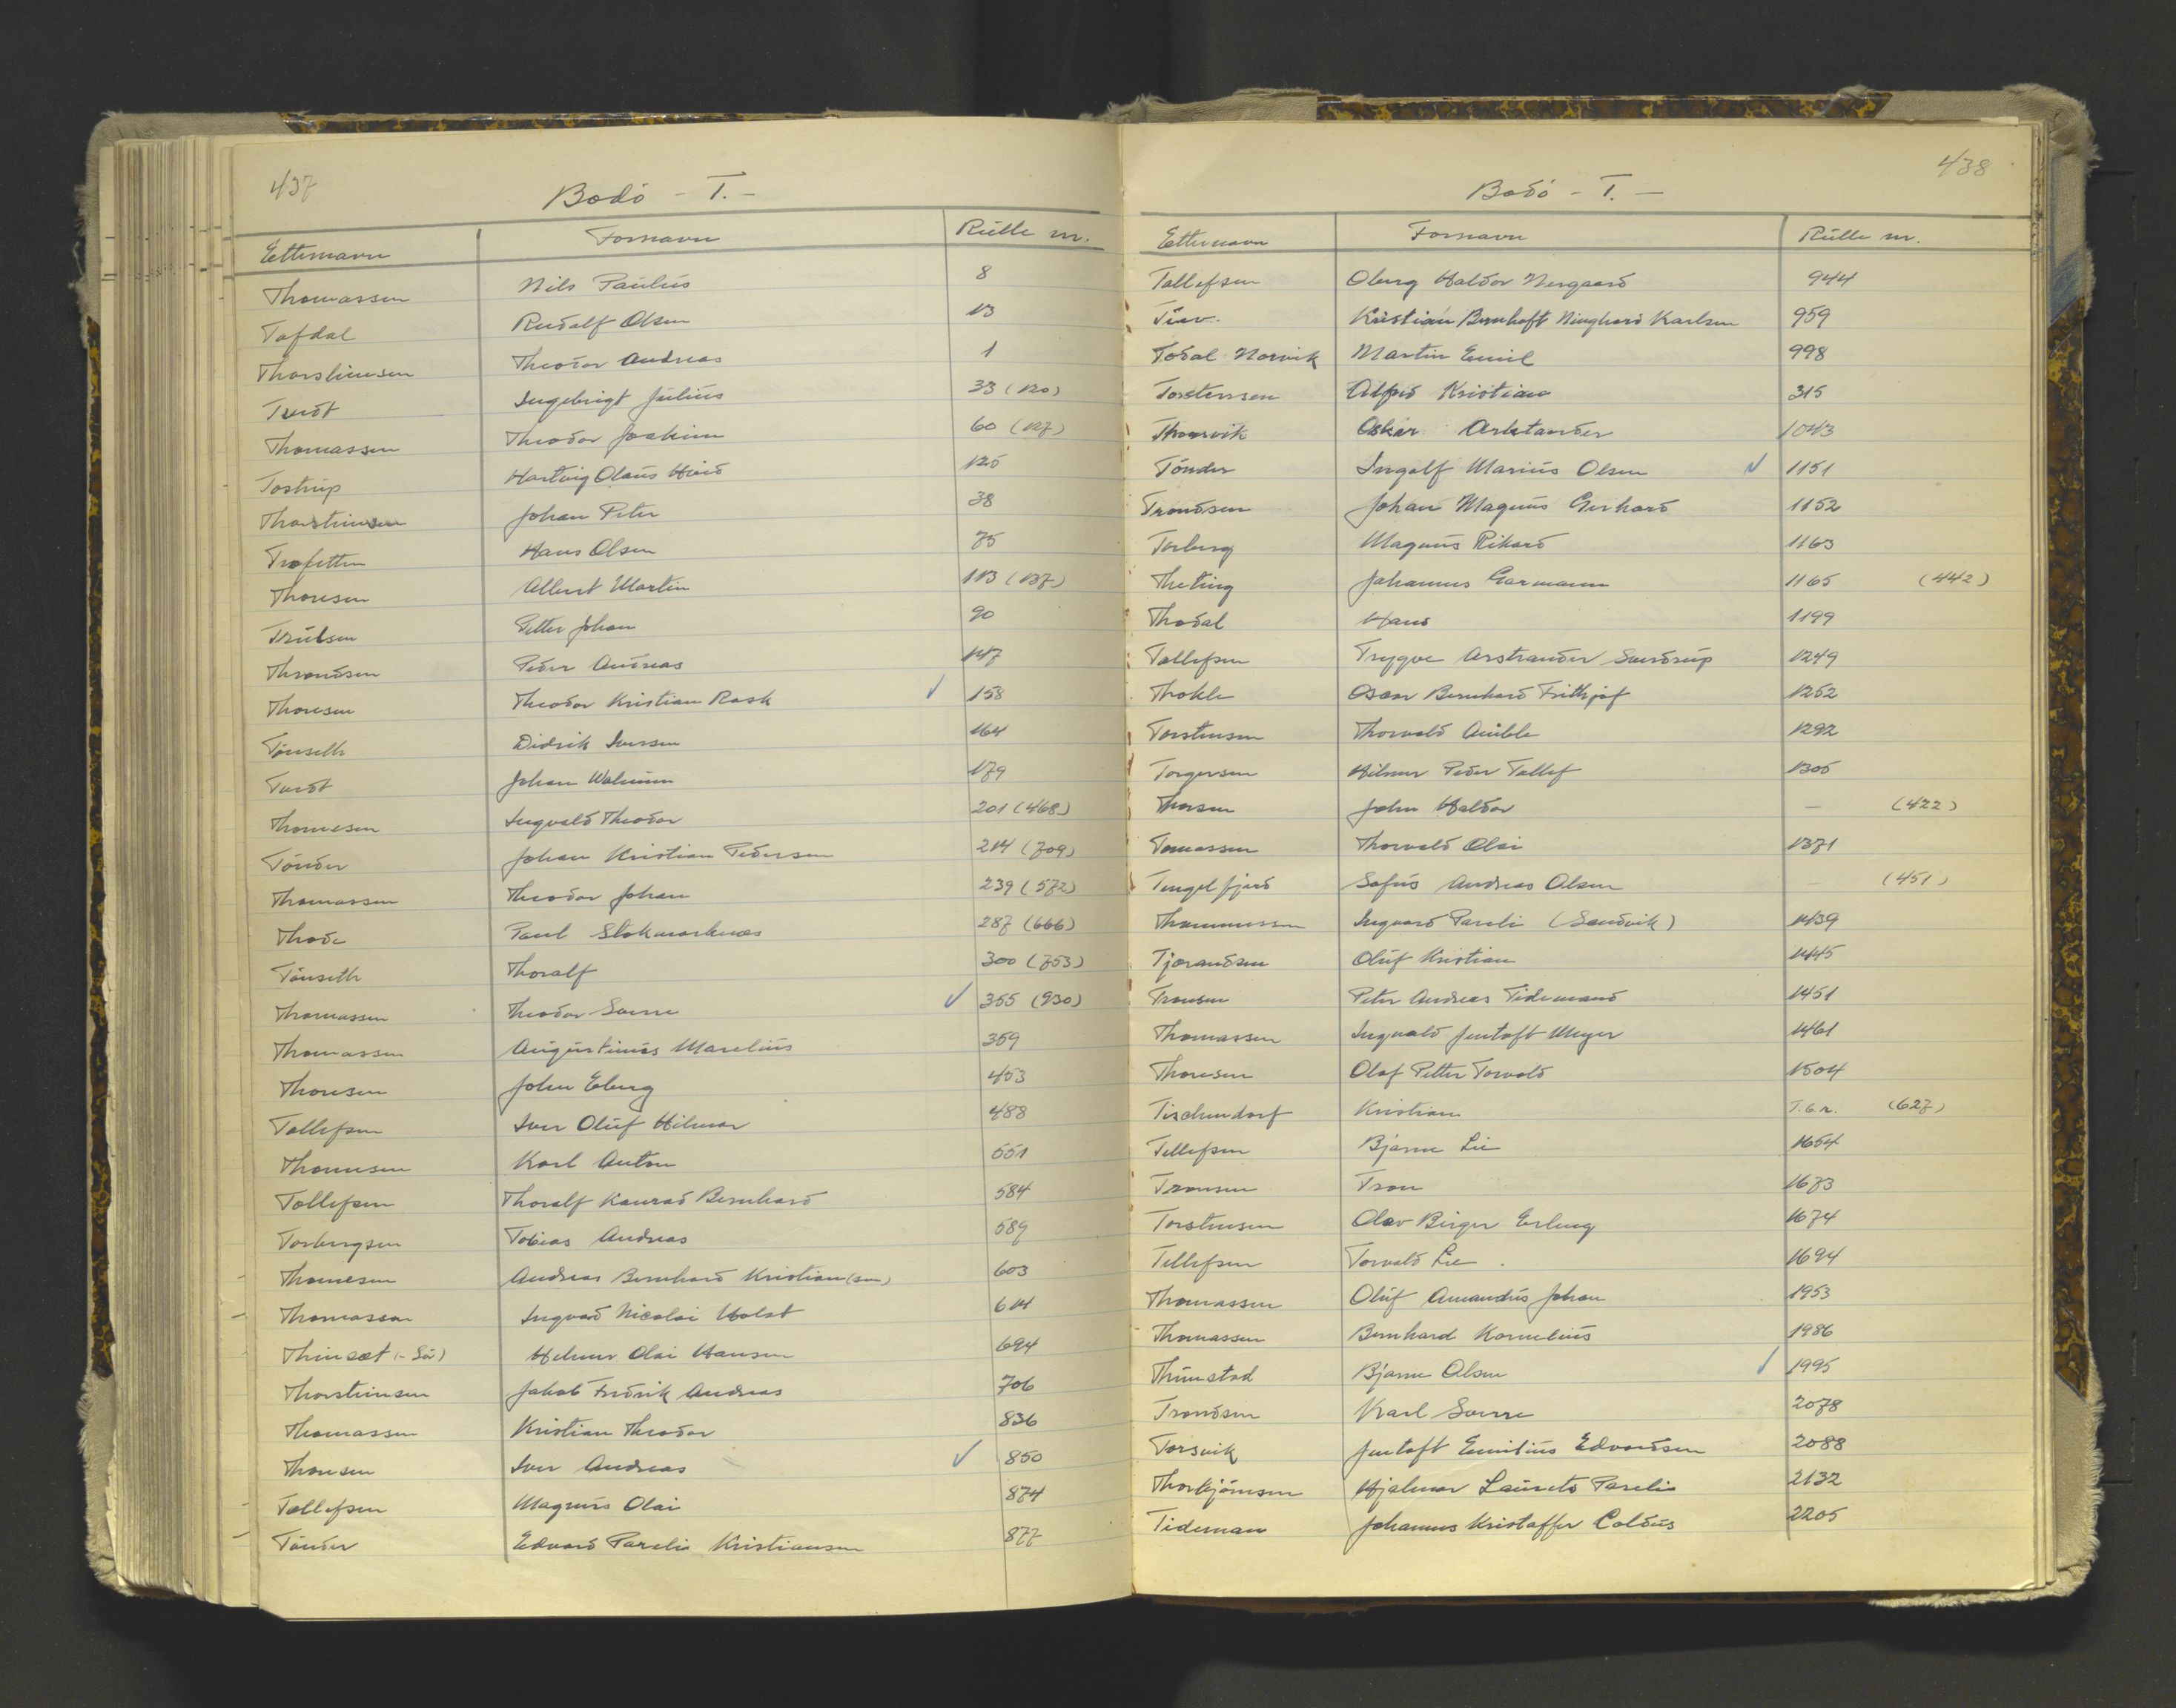 437
Bodó - T. -
Etternavn Fornavn Rulle nr.
Thomassen Nils Paulus 8
Tofdal Rudolf Olsen 13
Thorsteinsen Theodor Andreas 1
Tverdt Ingebrigt Julius 33 (120)
Thomassen Theodor Joakim 60 (127)
Tostrup Hartvig Olaus 125
Thorsteinsen Johan Peter 38
Trofetten Hans Olsen 75
Thoresen Albert Martin 113 (137)
Trulsen Petter Johan 90
Throndsen Peder Andreas 147
Thoresen Theodor Kristian Rask ✓ 158
Tönseth Didrik Iversen 164
Tverdt Johan 179
Thomesen Ingvald Theodor 201 (468)
Tönder Johan Kristian Pedersen 214 (709)
Thomassen Theodor Johan 239 (572)
Thode Paul Stokmarknes 287 (666)
Tönseth Thoralf 300 (753)
Thomassen Theodor Sverre ✓ 355 (930)
Thomassen Augustinus Marelius 359
Thoresen John Eberg 453
Tollefsen Iver Oluf Hilmar 488
Thomesen Karl Anton 551
Tollefsen Thoralf Konrad Bernhard 584
Torbergsen Tobias Andreas 589
Thomesen Andreas Bernhard Kristian(sen) 603
Thomassen Ingvard Nicolai Holst 614
Thinest (-Sö) Helmer Olai Hansen 694
Thorsteinsen Jakob Fredrik Andreas 706
Thomassen Kristian Theodor 836
Thonsen Iver Andreas ✓ 850
Tollefsen Magnus Olai 874
Tönder Edvard Parelis Kristiansen 877
438
Bodó - T. -
Etternavn Fornavn Rulle nr.
Tollefsen Oberg Haldor Nergaard 944
Kristian Bernhoft Karlsen 959
Todal Norvik Martin Emil 998
Torstensen Alfred Kristian 315
Thorsvik Oskar 1043
Tönder Ingolf Marius Olsen ✓ 1151
Trondsen Johan Magnus Gerhard 1152
Torberg Magnus Rikard 1163
Theting Johannes Garmann 1165 (442)
Thodal Hans 1199
Tollefsen Trygve Arstrander Sverdrup 1249
Thokle Oscar Bernhard Frithjof 1252
Torstensen Thorvald 1292
Torgersen Hilmar Peder Tollef 1305
Thorsen John Haldor — (422)
Tomassen Thorvald Olai 1371
Tengelfjord Sofus Andreas Olsen — (451)
Thommessen Ingvard Pareli (Sandvik) 1439
Tjorandsen Oluf Kristian 1445
Tronsen Peter Andreas Tidemand 1451
Thomassen Ingvald Jentoft Meyer 1461
Thoresen Olaf Petter Torvald 1504
Tischendorf Kristian T.6.r. (627)
Tellefsen Bjarne Lie 1654
Tronsen Tron 1673
Torstensen Olav Birger Erling 1674
Tellefsen Torvald Lie 1694
Thomassen Oluf Amandus Johan 1953
Thomassen Bernhard Kornelius 1986
Thunstad Bjarne Olsen ✓ 1995
Trondsen Karl Sverre 2078
Torsvik Jentoft Emilius Edvardsen 2088
Thorbjörnsen Hjalmar Laurets Parelis 2132
Tideman Johannes Kristoffer Coldus 2205